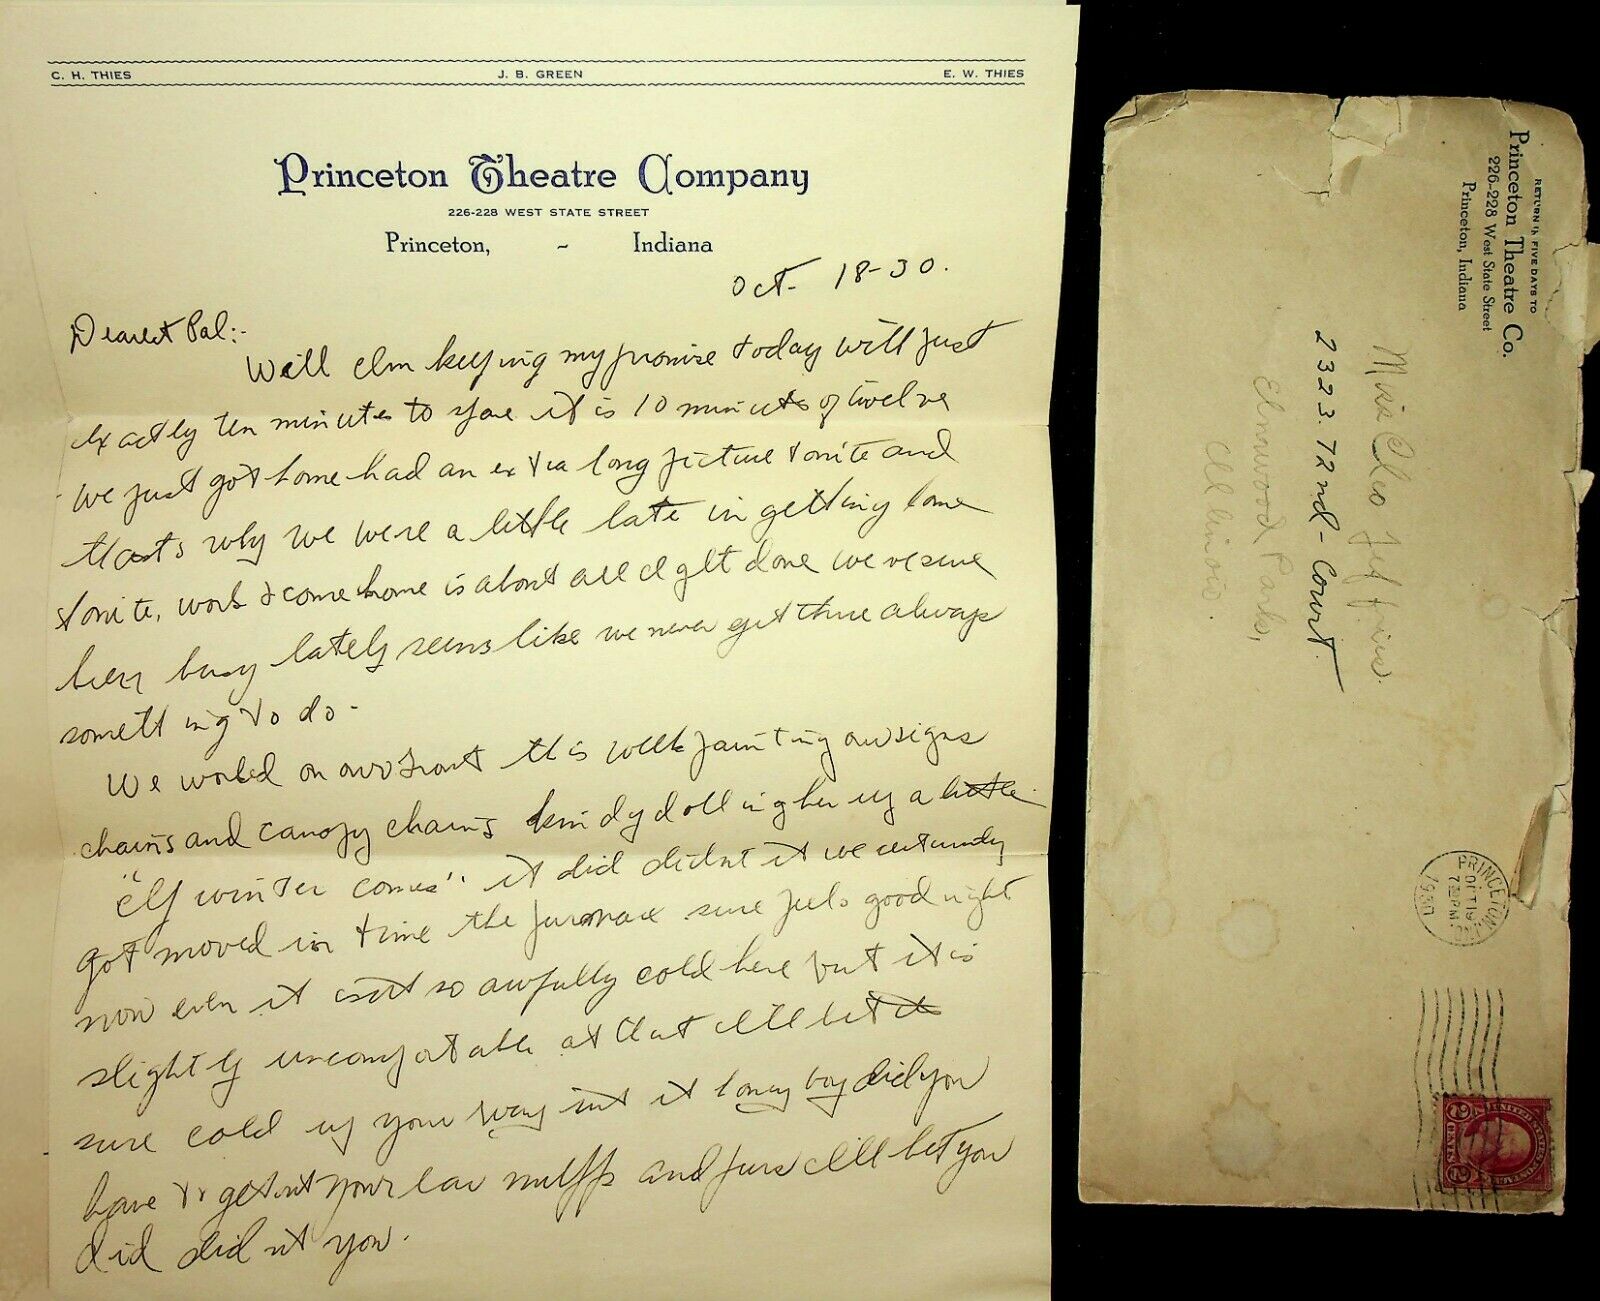 C. H. THIES J. B. GREEN E. W. THIES
Princeton Theatre Company
226-228 WEST STATE STREET
Princeton, - Indiana
Oct- 18-30.
Dearest Pal:-
Well I'm keeping my promise today with just
exactly ten minutes to spare it is 10 minutes of twelve
we just got home had an extra long picture tonite and
thats why we were a little late in getting home
tonite, work & come home is about all I get done we've sure
been busy lately seems like we never get thru always
something to do-
We worked on our front this week painting our signs
chains and canopy chains kindy dolling her up a little
"If winter comes" it did didnt it we certainly
got moved in time the furnace sure feels good right
now even it isnt so awfully cold here but it is
slightly uncomfortable at that I'll bet its
sure cold up your way isnt it honey boy did you
have to get out your ear muffs and furs I'll bet you
did did nt you.
RETURN IN FIVE DAYS TO
Princeton Theatre Co.
226-228 West State Street
Princeton, Indiana
Miss Cleo Jeffries.
2323. 72nd - Court
Elmwood Park,
Illinois.
PRINCETON, IND.
OCT 19
7 PM
1930
UNITED STATES
2 CENTS 2